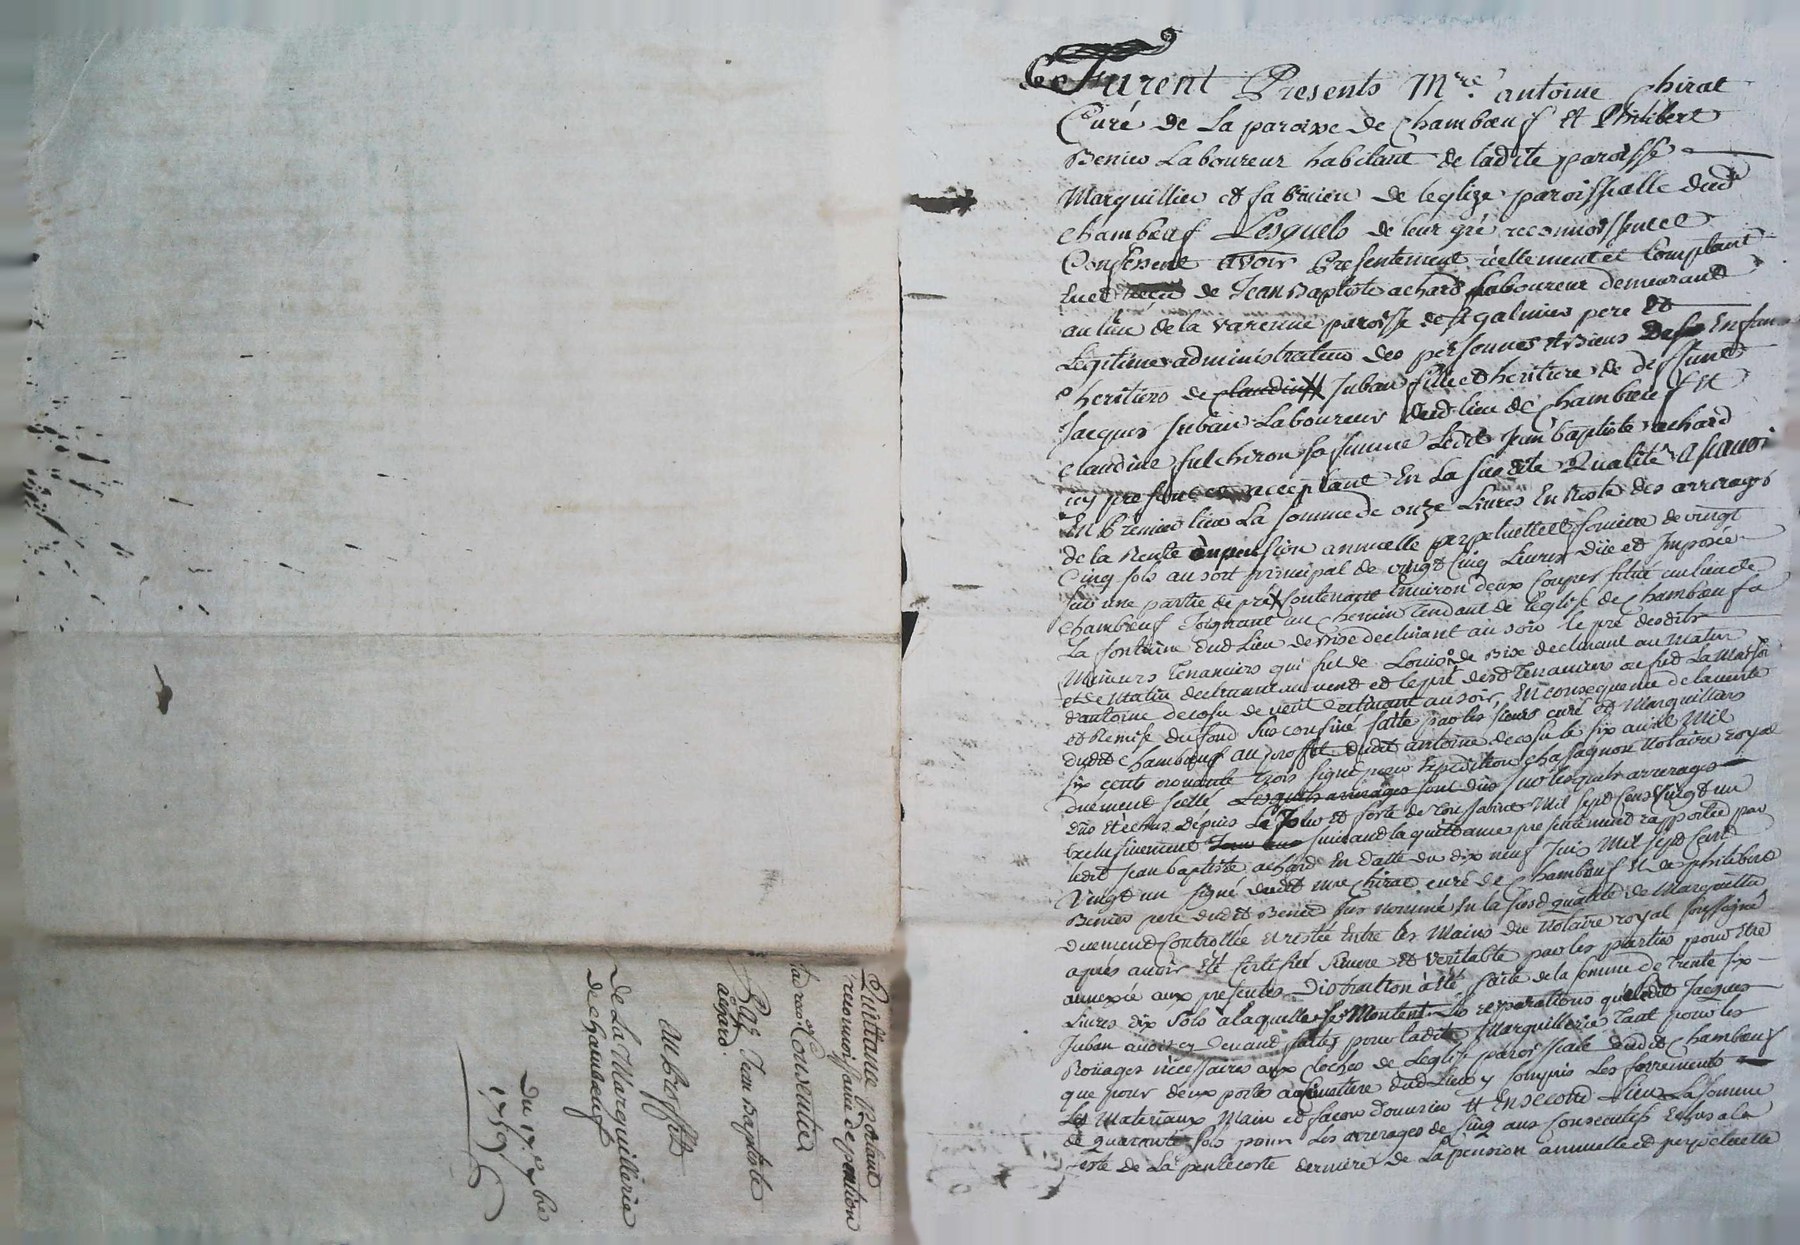 Quittance portant
reconnoissance de pention
fav. Jean Baptiste
achard
Au proffit
De La Marguillerie
de chambœuf
Du 17e 7bre
1739
Furent Presents Mre. antoine Chirat
Curé de La paroixe de Chambœuf Et Philibert
Benier Laboureur habitant de ladite paroisse
Marguillier et fabricien de leglize paroissialle dud
chambœuf Lesquels de leur gré reconnoissent et
Confessent avoir Presentement réellement et Comptant
Eu et reçu de Jean Baptiste achard Laboureur demeurant
au lieu de la varenne paroisse de st galmier pere Et
Legitime administrateur des personnes et Biens De ses Enfans
heritiers de claudine Juban fille et heritiere de deffunct
Jacques Juban Laboureur dud lieu de Chambœuf Et
claudine fulchiron sa femme Ledit Jean baptiste achard
icy present et acceptant En La susdite Qualité Ascavoir
En Premier lieu La somme de onze Livres En Reste des arrerages
de la Rente ou pension annuelle perpetuelle et fonciere de vingt
Cinq sols au sort principal de vingt Cinq Livres düe et Imposée
sur une partie de pré Contenant Environ deux Coupes situé au lieu de
chambœuf Joignant un Chemin Tendant de leglise de Chambœuf a
La fontaine dud Lieu de vise declinant au soir le pré desdits
Mineurs Tenanciers qui fut de Louis de Bise declinant au Matin
et de Matin declinant au vent et le pré desd Tenanciers ou fud La Maison
d'antoine decosu de vent declinant au soir, En consequence de la vente
et Remise du fond sus confiné faitte par les sieurs curé et Marguilliers
dudit Chambœuf au proffit dudit antoine decosu le six avril Mil
six cents nonante trois signé pour Expedition chasagnon Notaire royal
düement scellé Lesquels arrerages sont dus sur lesquels arrerages
dus et échus depuis Le Jour et feste de Toussaints Mil sept Cens Vingt un
Exclusivement suivant la quittance presentement rapportée par
ledit Jean baptiste achard En datte du dix neuf Juin Mil sept Cent
Vingt un signé dudit mre Chirat curé de Chambœuf Et de philibert
Benier pere dudit Benier sus nommé En la susd qualité de Marguillier
duement Controllée et restée Entre les Mains du Notaire royal soussigné
après avoir Eté certifiée sincere et veritable par les parties pour Etre
annexée aux presentes Distraction a Eté faite de la somme de trente six
Livres dix sols a laquelle se Montent les reparations que ledit Jacques
Juban avoit cy devand faites pour ladite Marguillerie Tant pour les
Rouages necessaires aux cloches de Leglise paroissiale dudit Chambœuf
que pour deux portes au cimetiere dud Lieu y compris Les ferrements
Les Materiaux Main et façon d'ouvrier Et En second Lieu La somme
de quarante sols pour Les arrerages de Cinq ans Consecutifs Echus a la
feste de La pentecoste derniere de La pension annuelle et perpetuelle